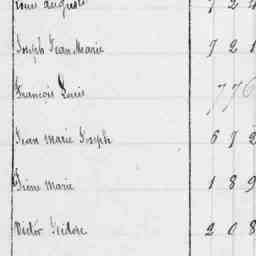 Louis Auguste 7 2 4
Joseph Jean Marie 7 2 1
François Louis 7 7 6
Jean marie Joseph 6 7 2
Irène marie 1 8 9
Victor Isidore 2 0 8